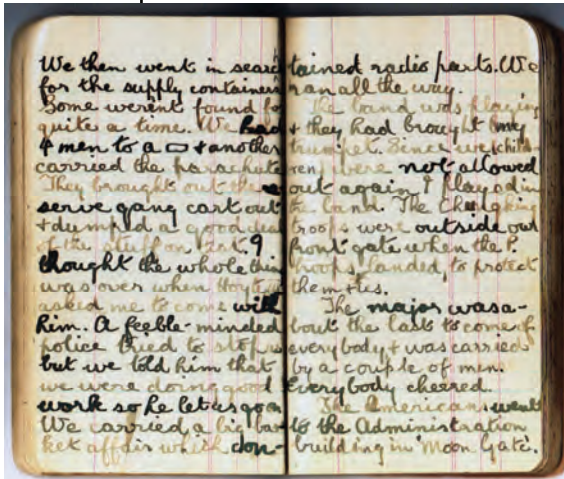 We then went in search
for the supply containers
Some werent found for
quite a time. We had
4 men to a ▭ + another
carried the parachute
They brought out the re
serve gang cart out
+ dumped a good deal
of the stuff on I
thought the whole thing
was over when Hoyte
asked me to come with
him. A feeble-minded
police tried to stop us
but we told him that
we were doing good
work so he let us go on
We carried a big bas-
ket affair which con-
tained radio parts. We
ran all the way.
The band was playing
+ they had brought my
trumpet. Since we child-
ren were not allowed
out again I played in
the band. The Chungking
troops were outside our
front gate when the P.
troops landed, to protect
them + us.
The major was a-
bout the last to come of
everybody + was carried
by a couple of men.
Everybody cheered.
The Americans went
to the Administration
building in 'Moon Gate'.